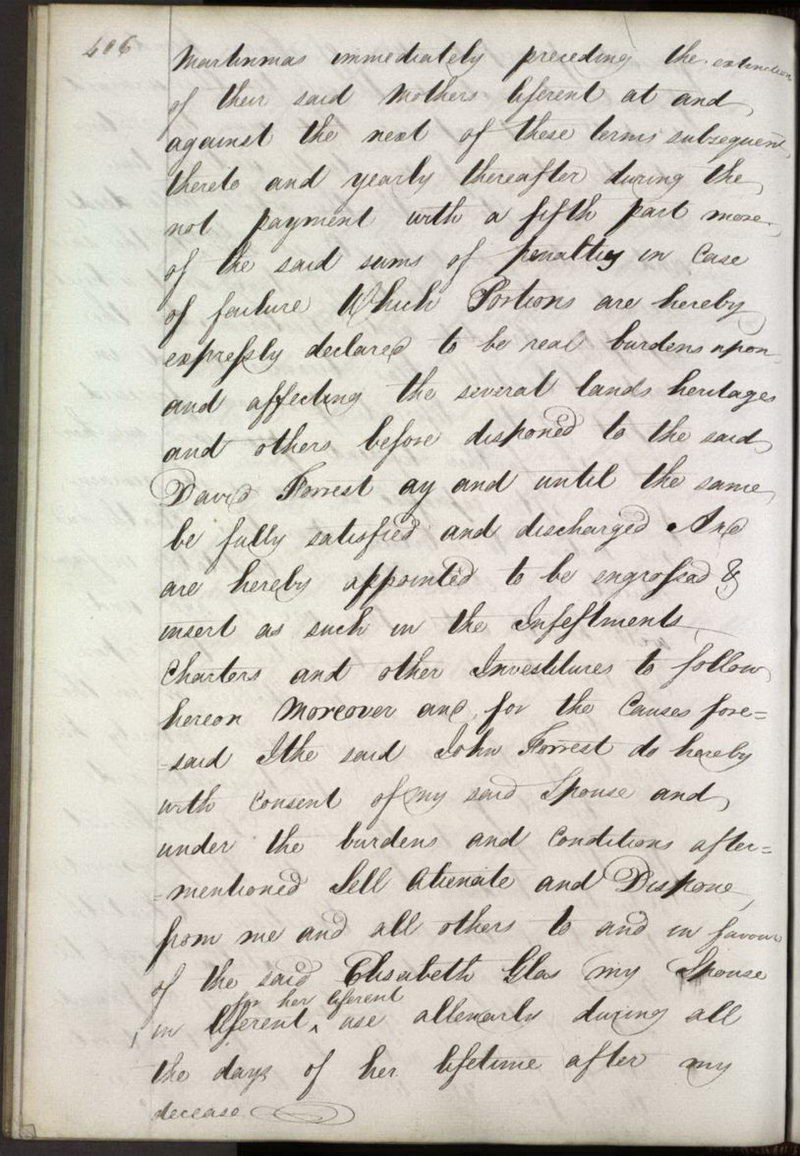 606
Martinmas immediately preceding the extinction
of their said Mothers liferent at and
against the next of these terms subsequent
thereto and yearly thereafter during the
not payment with a fifth part more
of the said sums of penaltys in Case
of failure Which Portions are hereby
expressly declared to be real burdens upon
and affecting the several lands heritages
and others before disponed to the said
David Forrest ay and until the same
be fully satisfied and discharged And
are hereby appointed to be engrossed &
insert as such in the Infeftments
Charters and other Investitures to follow
hereon Moreover and for the Causes fore=
=said I the said John Forrest do hereby
with Consent of my said Spouse and
under the burdens and Conditions after=
=mentioned Sell Alienate and Dispone
from me and all others to and in favour
of the said Elisabeth Glas my Spouse
for her liferent
in liferent ‸ use allenarly during all
the days of her lifetime after my
decease